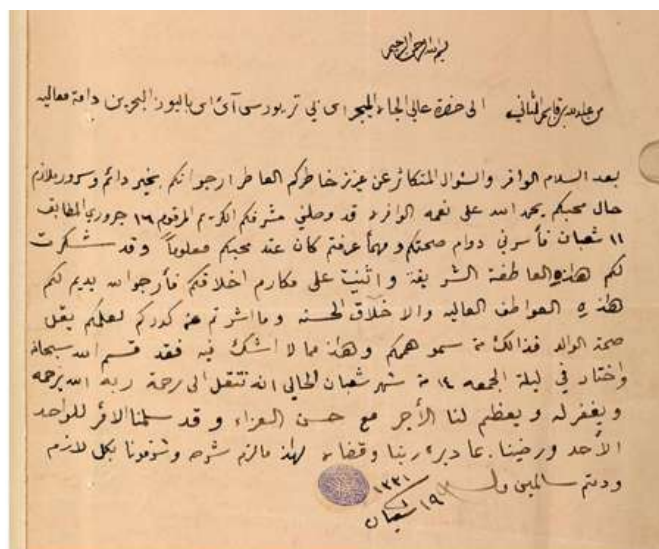 بسم الله الرحمن الرحيم
من عبدالله بن قاسم الثاني الى حضرة عالي الجاه الميجر اي بي تريور سي آئ اي باليوز البحرين دامة معاليه
بعد السلام الوافر والسئوال المتكاثر عن عزيز خاطركم العاطر ارجو انكم بخير دائم وسرور ملازم
حال محبكم بحمد الله على نعمه الوافره قد وصلني مشرفكم الكريم المرقوم ١٦ جروري المطابق
١١ شعبان فأسرني دوام صحتكم ومهما عرفتم كان عند محبكم معلوماً وقد شكرت
لكم هاذه العاطفة الشريفة واثنيت على مكارم اخلاقكم فأرجو الله يديم لكم
هاذه العواطف العاليه والاخلاق الحسنه وما اشرتم عنه كدركم لعلمكم بثقل
صحة الوالد فذالك من سمو هممكم وهاذ مما لا اشك فيه فقد قسم الله سبحانه
واختار في ليلة الجمعه ١٤ من شهر شعبان الحالي انه تنتقل الى رحمة ربه الله يرحمه
ويغفر له ويعظم لنا الأجر مع حسن العزاء وقد سلمنا الامر للواحد
الأحد ورضينا بما دبره ربنا وقضاه لهاذ مالزم شرحه وشرفونا بكل لازم
ودمتم سالمين
١٩ شعبان ١٣٣١